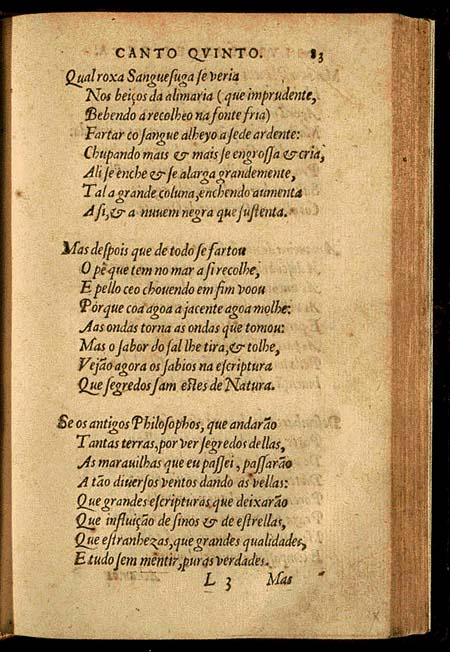 CANTO QVINTO. 83
Qual roxa Sanguesuga se veria
Nos beiços da alimaria (que imprudente,
Bebendo a recolheo na fonte fria)
Fartar co sangue alheyo a sede ardente:
Chupando mais & mais se engrossa & cria,
Ali se enche & se alarga grandemente,
Tal a grande coluna, enchendo aumenta
A si, & a nuuem negra que sustenta.
Mas despois que de todo se fartou
O pè que tem no mar a si recolhe,
E pello ceo chouendo em fim voou
Porque coa agoa a jacente agoa molhe:
Aas ondas torna as ondas que tomou:
Mas o sabor do sal lhe tira, & tolhe,
Vejão agora os sabios na escriptura
Que segredos sam estes de Natura.
Se os antigos Philosophos, que andarão
Tantas terras, por ver segredos dellas,
As marauilhas que eu passei, passarão
A tão diuersos ventos dando as vellas:
Que grandes escripturas que deixarão
Que influição de sinos & de estrellas,
Que estranhezas, que grandes qualidades,
E tudo sem mentir, puras verdades.
L 3 Mas